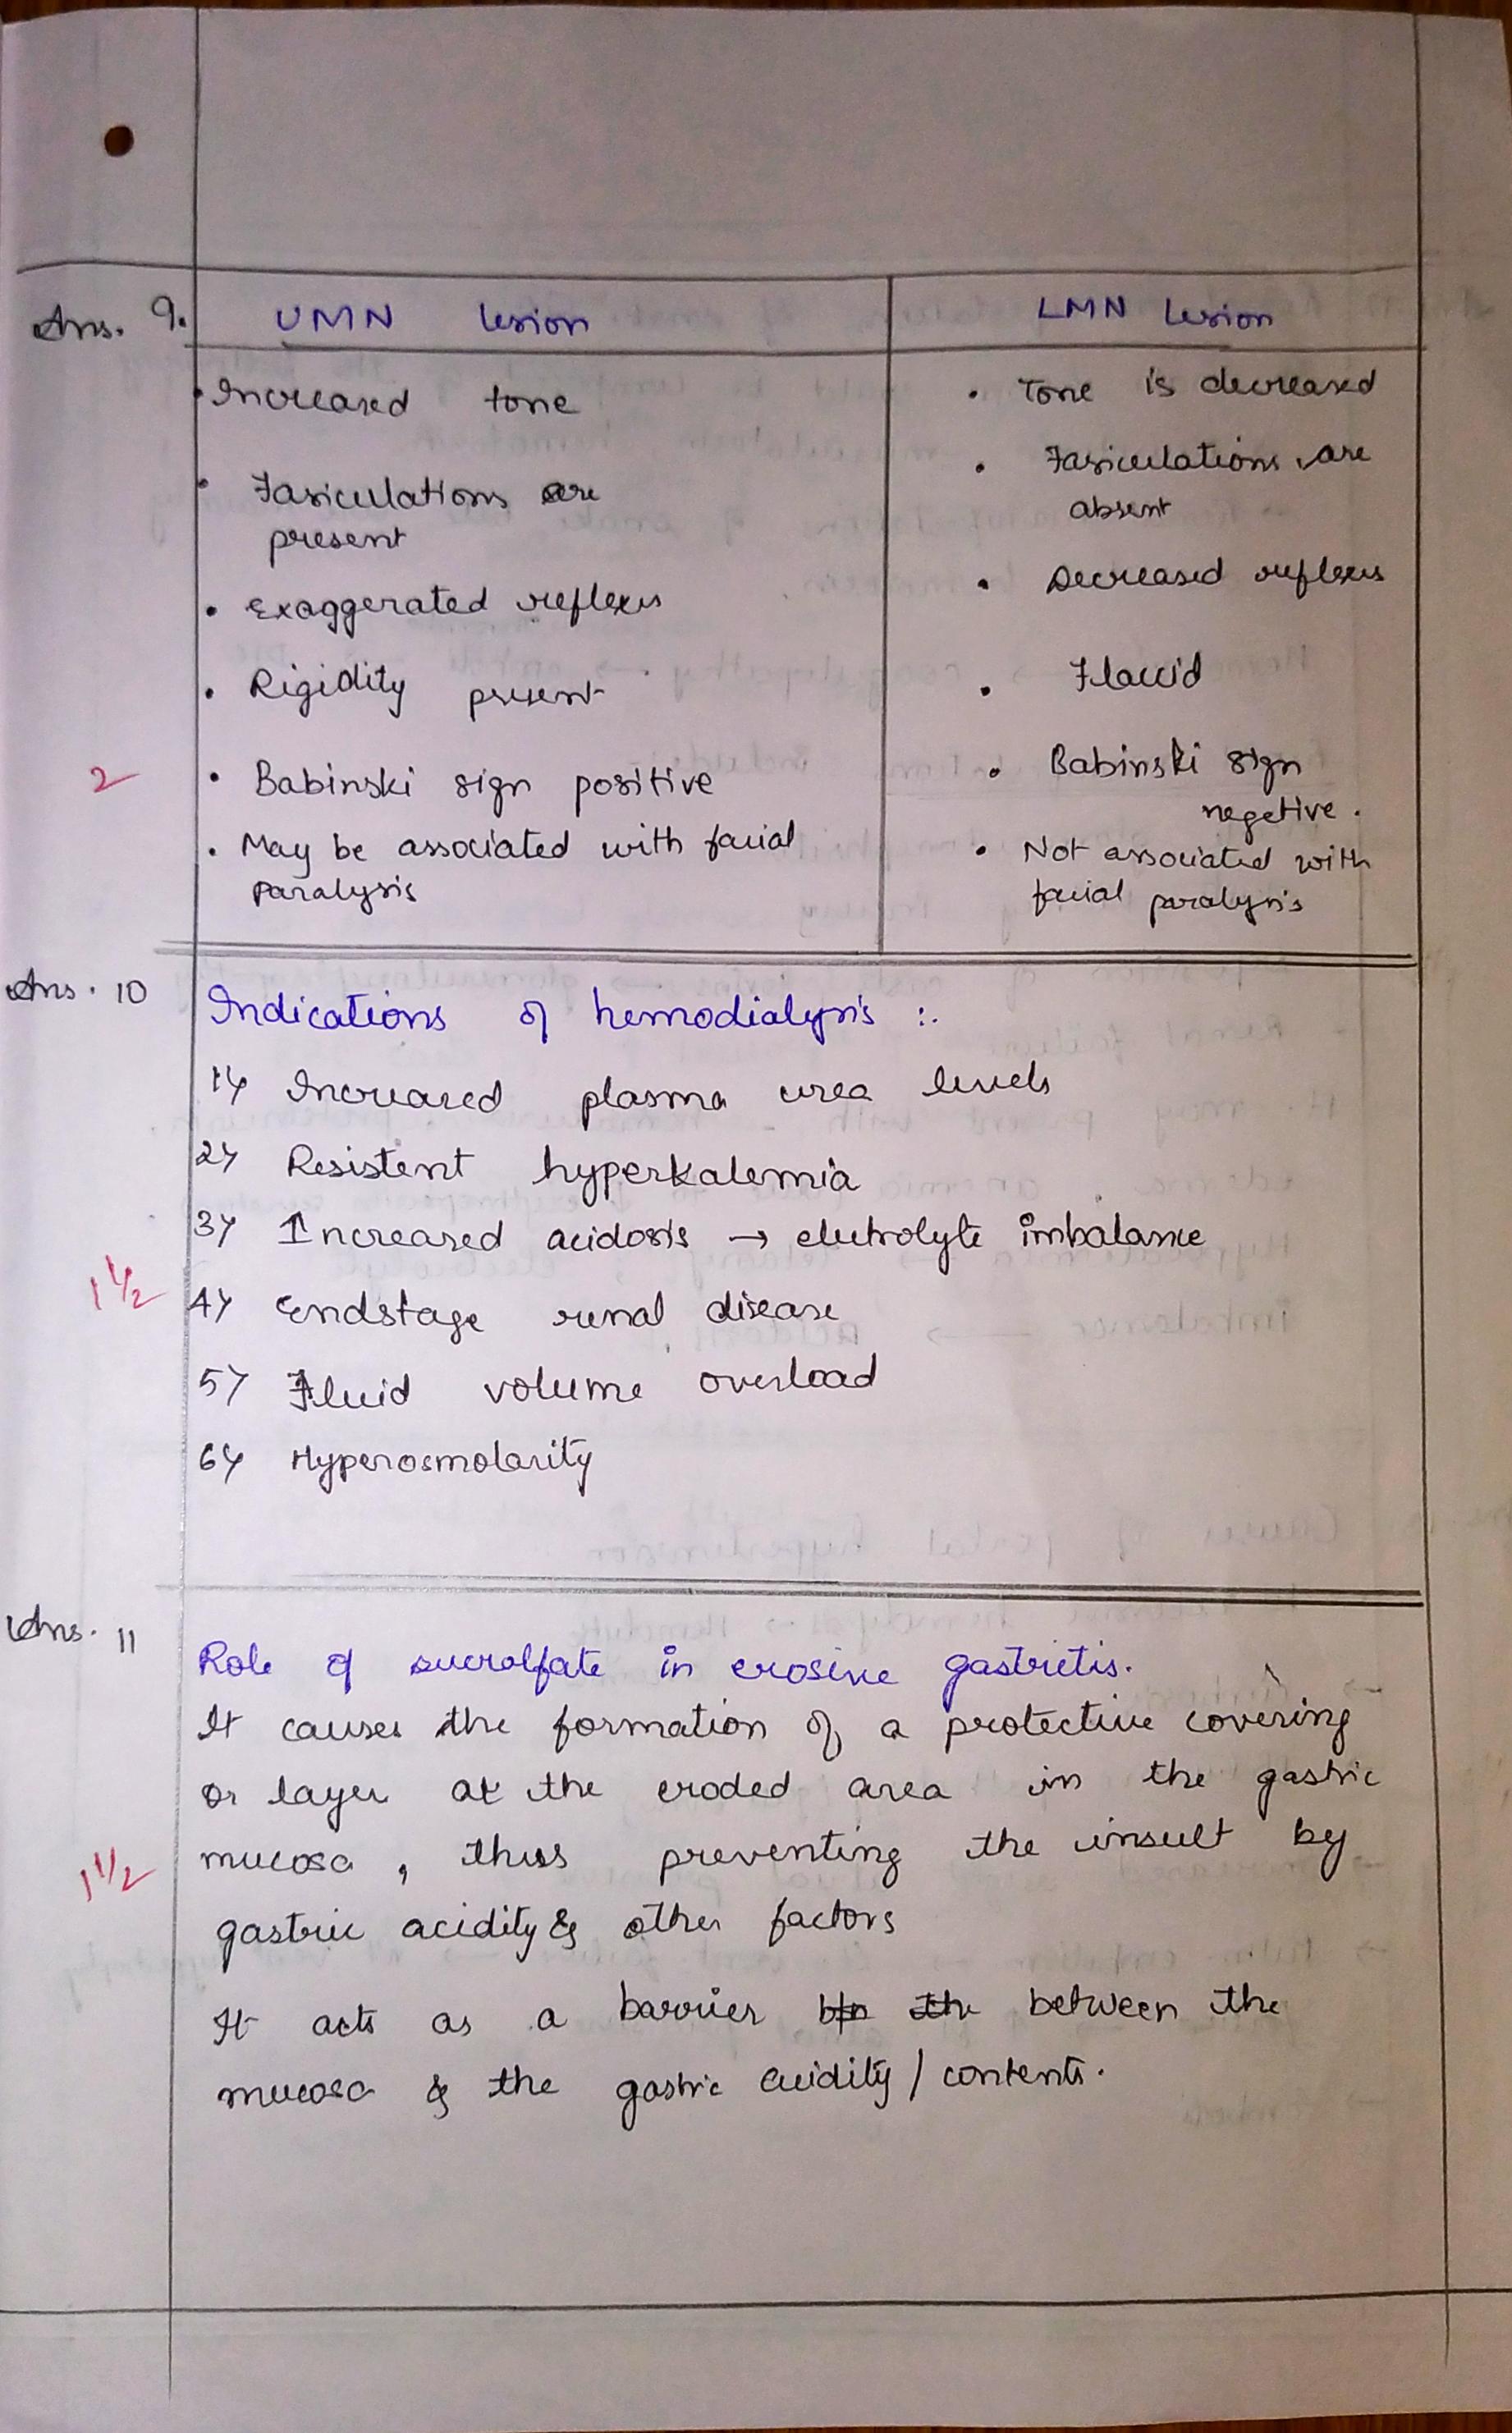 Ans. 9. UMN lesion LMN lesion
• Increased tone
• Tone is decreased
• Fasiculations are
present
• Fasiculations are
absent
• Exaggerated reflexes
• Decreased reflexes
• Rigidity present
• Flaccid
2
• Babinski sign positive
• Babinski sign
negetive.
• May be associated with facial
paralysis
• Not associated with
facial paralysis
Ans. 10 Indications of hemodialysis :.
1) Increased plasma urea levels
2) Resistent hyperkalemia
3) Increased acidosis → eletrolyte imbalance
1 1/2
4) Endstage renal disease
5) Fluid volume overload
6) Hyperosmolarity
Ans. 11
Role of sucralfate in erosive gastritis.
It causes the formation of a protective covering
or layer at the eroded area in the gastric
mucosa, thus preventing the insult by
1 1/2
gastric acidity & other factors
It acts as a barrier between the
mucosa & the gastric acidity / contents.